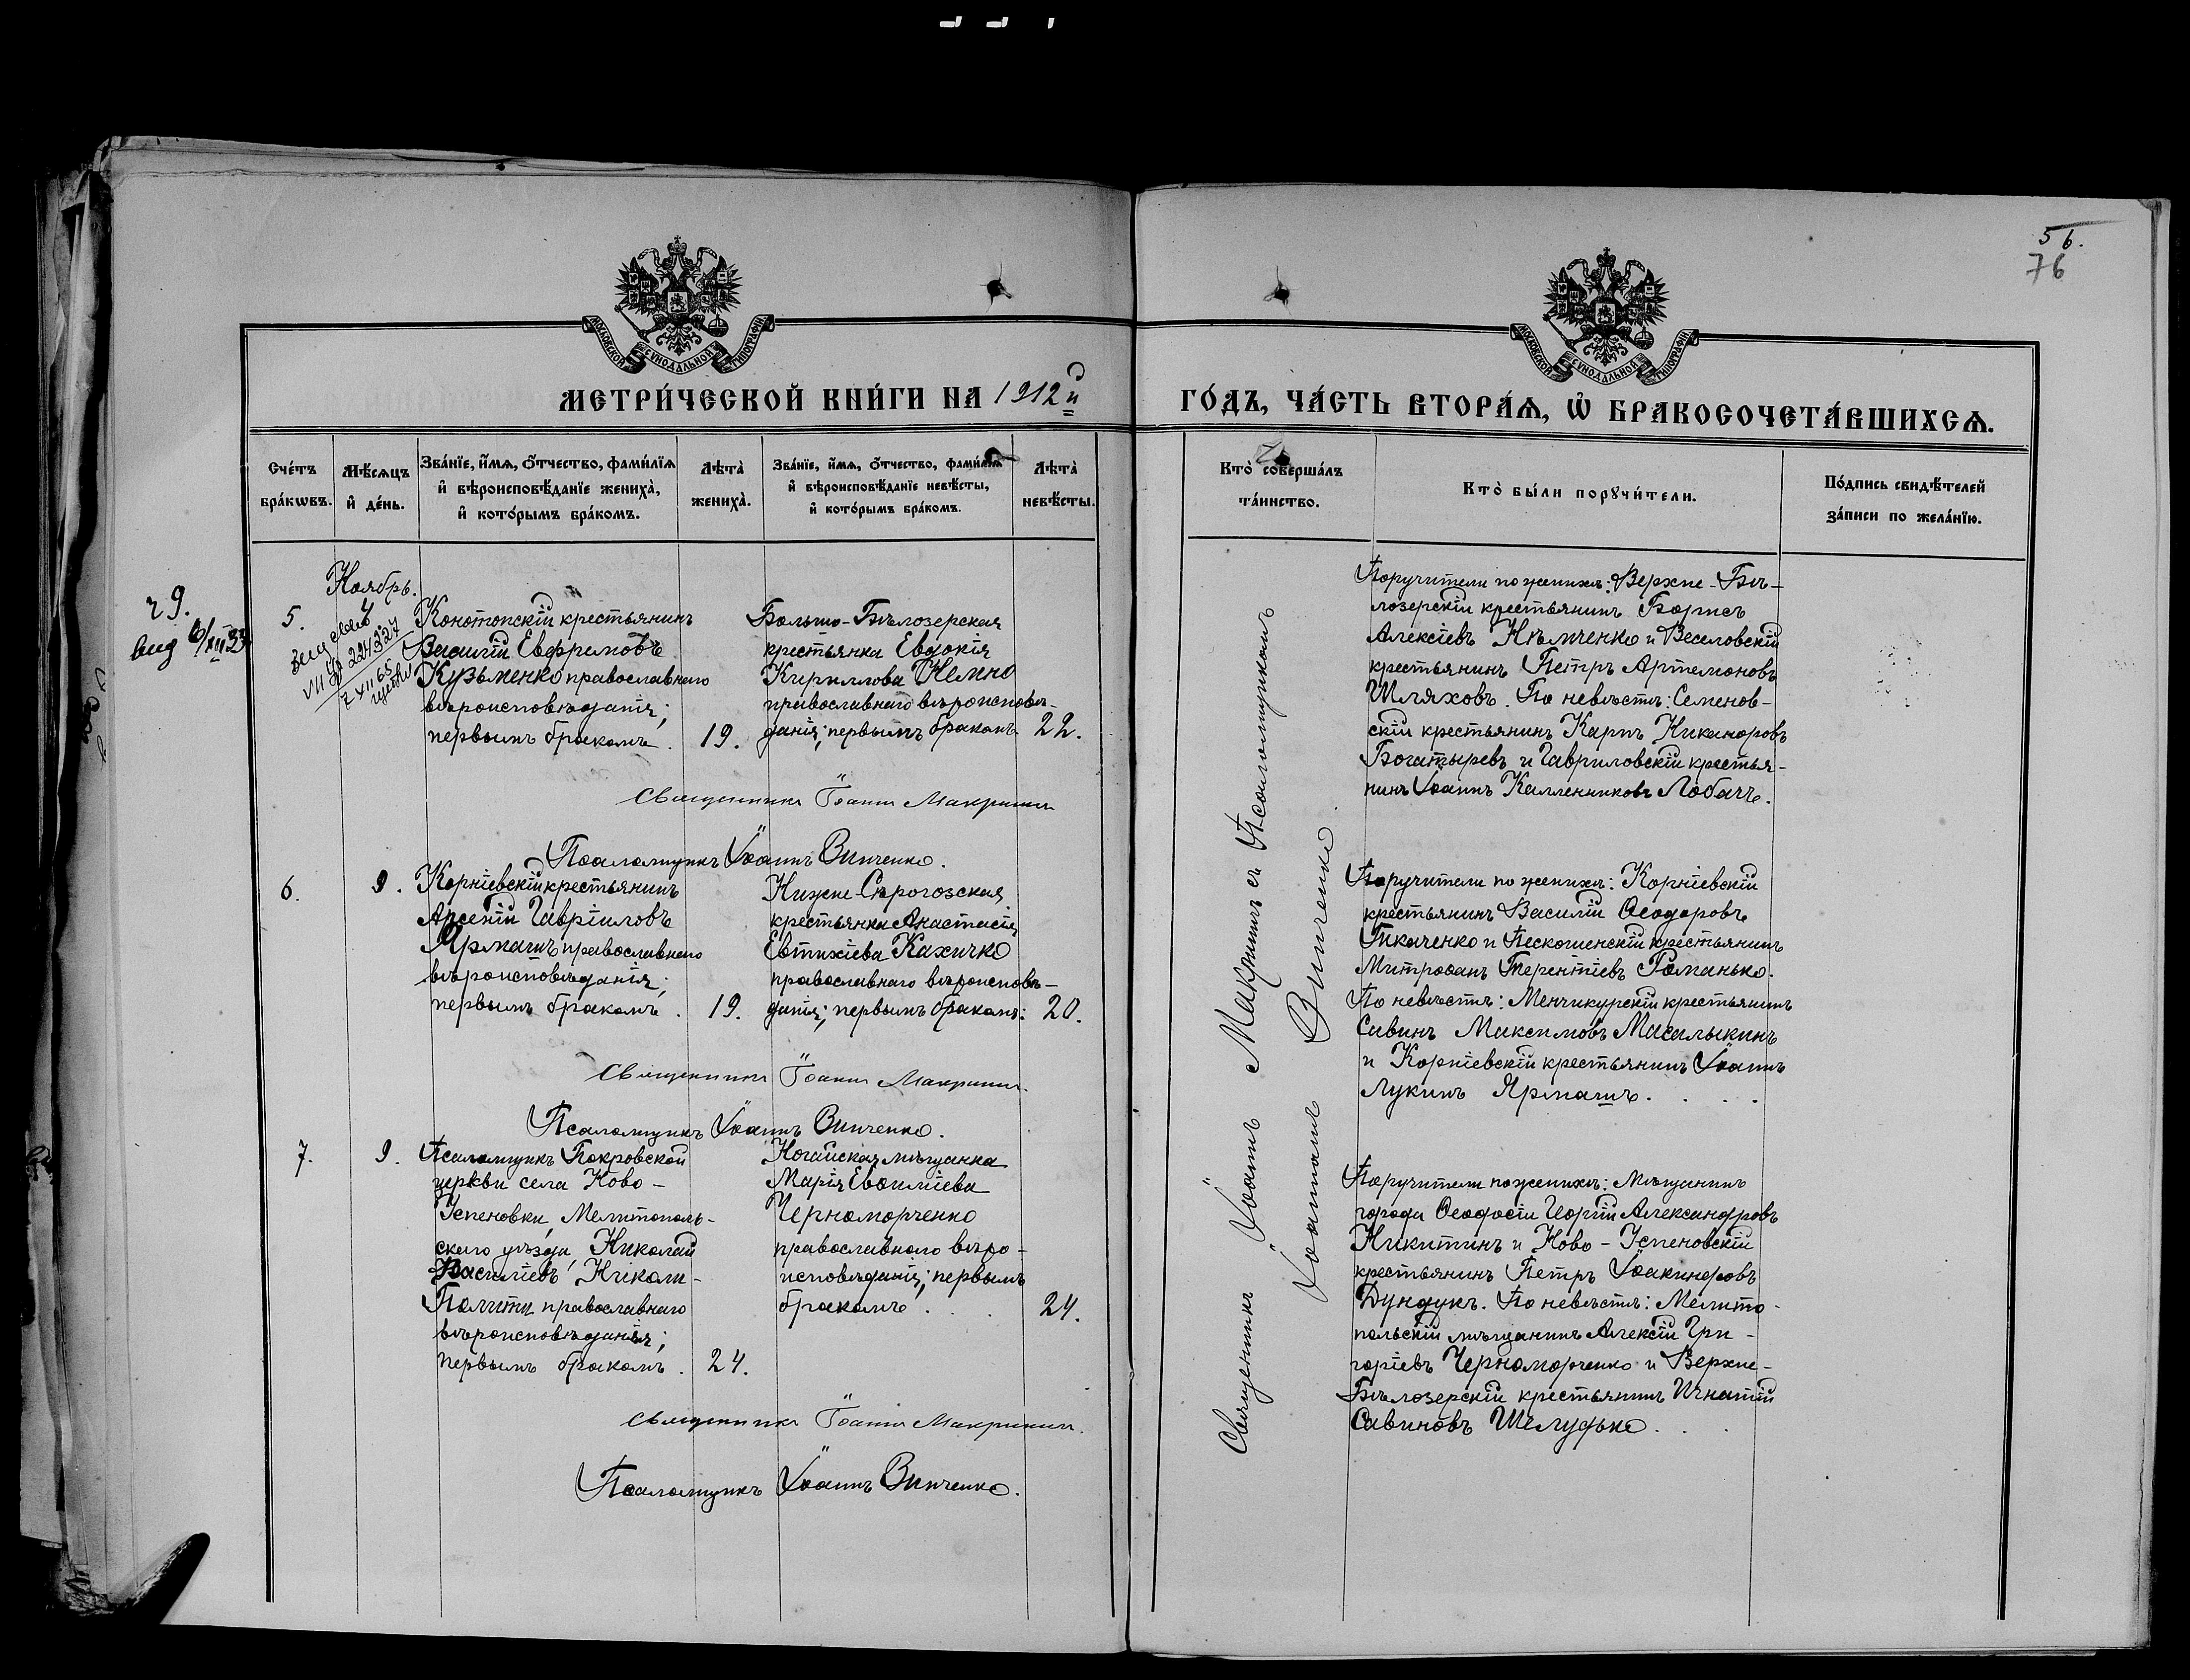 56.
76
МОСКОВСКОЙ СѴНОДАЛЬНОЙ ТИПОГРАФІИ
МОСКОВСКОЙ СѴНОДАЛЬНОЙ ТИПОГРАФІИ
МЕТРИ́ЧЕСКОЙ КНИ́ГИ НА 1912й
ГО́ДЪ, ЧА́СТЬ ВТОРА́Ѧ, Ѡ БРАКОСОЧЕТА́ВШИХСѦ.
Сче́тъ бра́кѡвъ.
Мѣ́сѧцъ и҆ де́нь.
Зва́нїе, и҆́мѧ, ѻ҆́тчество, фами́лїѧ
и҆ вѣроисповѣ́данїе жениха̀,
и҆ кото́рымъ бра́комъ.
Лѣта̀ жениха̀.
Зва́нїе, и҆́мѧ, ѻ҆́тчество, фами́лїѧ
и҆ вѣроисповѣ́данїе невѣ́сты,
и҆ кото́рымъ бра́комъ.
Лѣта̀ невѣ́сты.
Кто̀ соверша́лъ та́инство.
Кто̀ бы́ли порꙋчи́тели.
По́дпись свидѣ́телей за́писи по жела́нїю.
Ноябрь.
5.
Конотопскій крестьянинъ
Василій Евфимовъ
Кузьменко православнаго
вѣроисповѣданія;
первымъ бракомъ. 19.
Больше-Бѣлозерская
крестьянка Евдокія
Кириллова Немно
православнаго вѣроисповѣ-
данія; первымъ бракомъ. 22.
Поручители по женихѣ: Верхне-Бѣ-
лозерскій крестьянинъ Борисъ
Алексіевъ Нѣмченко и Веселовскій
крестьянинъ Петръ Артемоновъ
Шляховъ. По невѣстѣ: Семенов-
скій крестьянинъ Карпъ Никаноровъ
Богатыревъ и Гавриловскій крестья-
нинъ Іоаннъ Каллениковъ Лобачъ.
Священникъ Іоаннъ Макринъ
Псаломщикъ Іоаннъ Винченко.
6.
9.
Корніевскій крестьянинъ
Арсеній Гавріиловъ
Ярмашъ православнаго
вѣроисповѣданія;
первымъ бракомъ. 19.
Нижне-Сѣрогозская
крестьянка Анастасія
Евтихіева Кахичко
православнаго вѣроисповѣ-
данія; первымъ бракомъ: 20.
Поручители по женихѣ: Корніевскій
крестьянинъ Василій Ѳеодоровъ
Ткаченко и Пескошенскій крестьянинъ
Митрофанъ Терентіевъ Романько.
По невѣстѣ: Менчикурскій крестьянинъ
Савинъ Максимовъ Масалыкинъ
и Корніевскій крестьянинъ Іоаннъ
Лукинъ Ярмашъ.
Священникъ Іоаннъ Макринъ.
Псаломщикъ Іоаннъ Винченко.
7.
9.
Псаломщикъ Покровской
церкви села Ново-
Успеновки, Мелитополь-
скаго уѣзда, Николай
Василіевъ Николи-
Полити православнаго
вѣроисповѣданія;
первымъ бракомъ. 24.
Ногайская мѣщанка
Марія Евѳиміева
Черноморченко
православнаго вѣро-
исповѣданія; первымъ
бракомъ. 24.
Поручители по женихѣ: Мѣщанинъ
города Ѳеодосіи Георгій Александровъ
Никитинъ и Ново-Успеновскій
крестьянинъ Петръ Іоакинфовъ
Дундукъ. По невѣстѣ: Мелито-
польскій мѣщанинъ Алексій Гри-
горіевъ Черноморченко и Верхне-
Бѣлозерскій крестьянинъ Игнатій
Савиновъ Шелудько.
Священникъ Іоаннъ Макринъ.
Псаломщикъ Іоаннъ Винченко.
Священникъ Іоаннъ Макринъ съ Псаломщикомъ
Іоанномъ Винченко